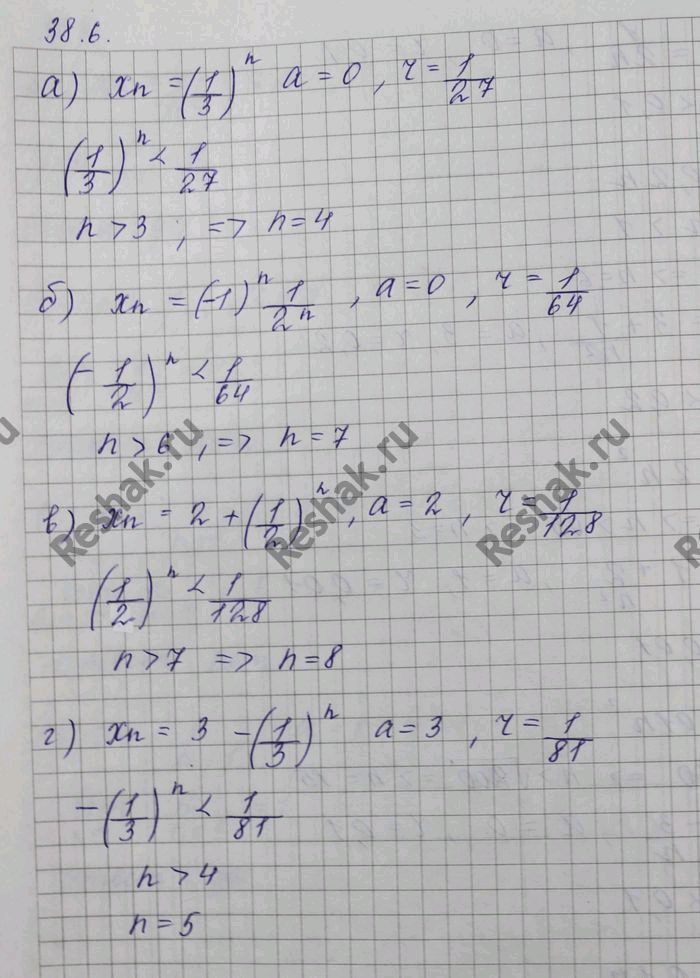 38.6.
а) xn = (1/3)^n a = 0 , r = 1/27
(1/3)^n < 1/27
n > 3 ; => n = 4
б) xn = (-1)^n 1/2^n , a = 0 , r = 1/64
(- 1/2)^n < 1/64
n > 6 , => n = 7
в) xn = 2 + (1/2)^n , a = 2 , r = 1/128
(1/2)^n < 1/128
n > 7 => n = 8
г) xn = 3 - (1/3)^n a = 3 , r = 1/81
-(1/3)^n < 1/81
n > 4
n = 5
Reshak.ru
Reshak.ru
Reshak.ru